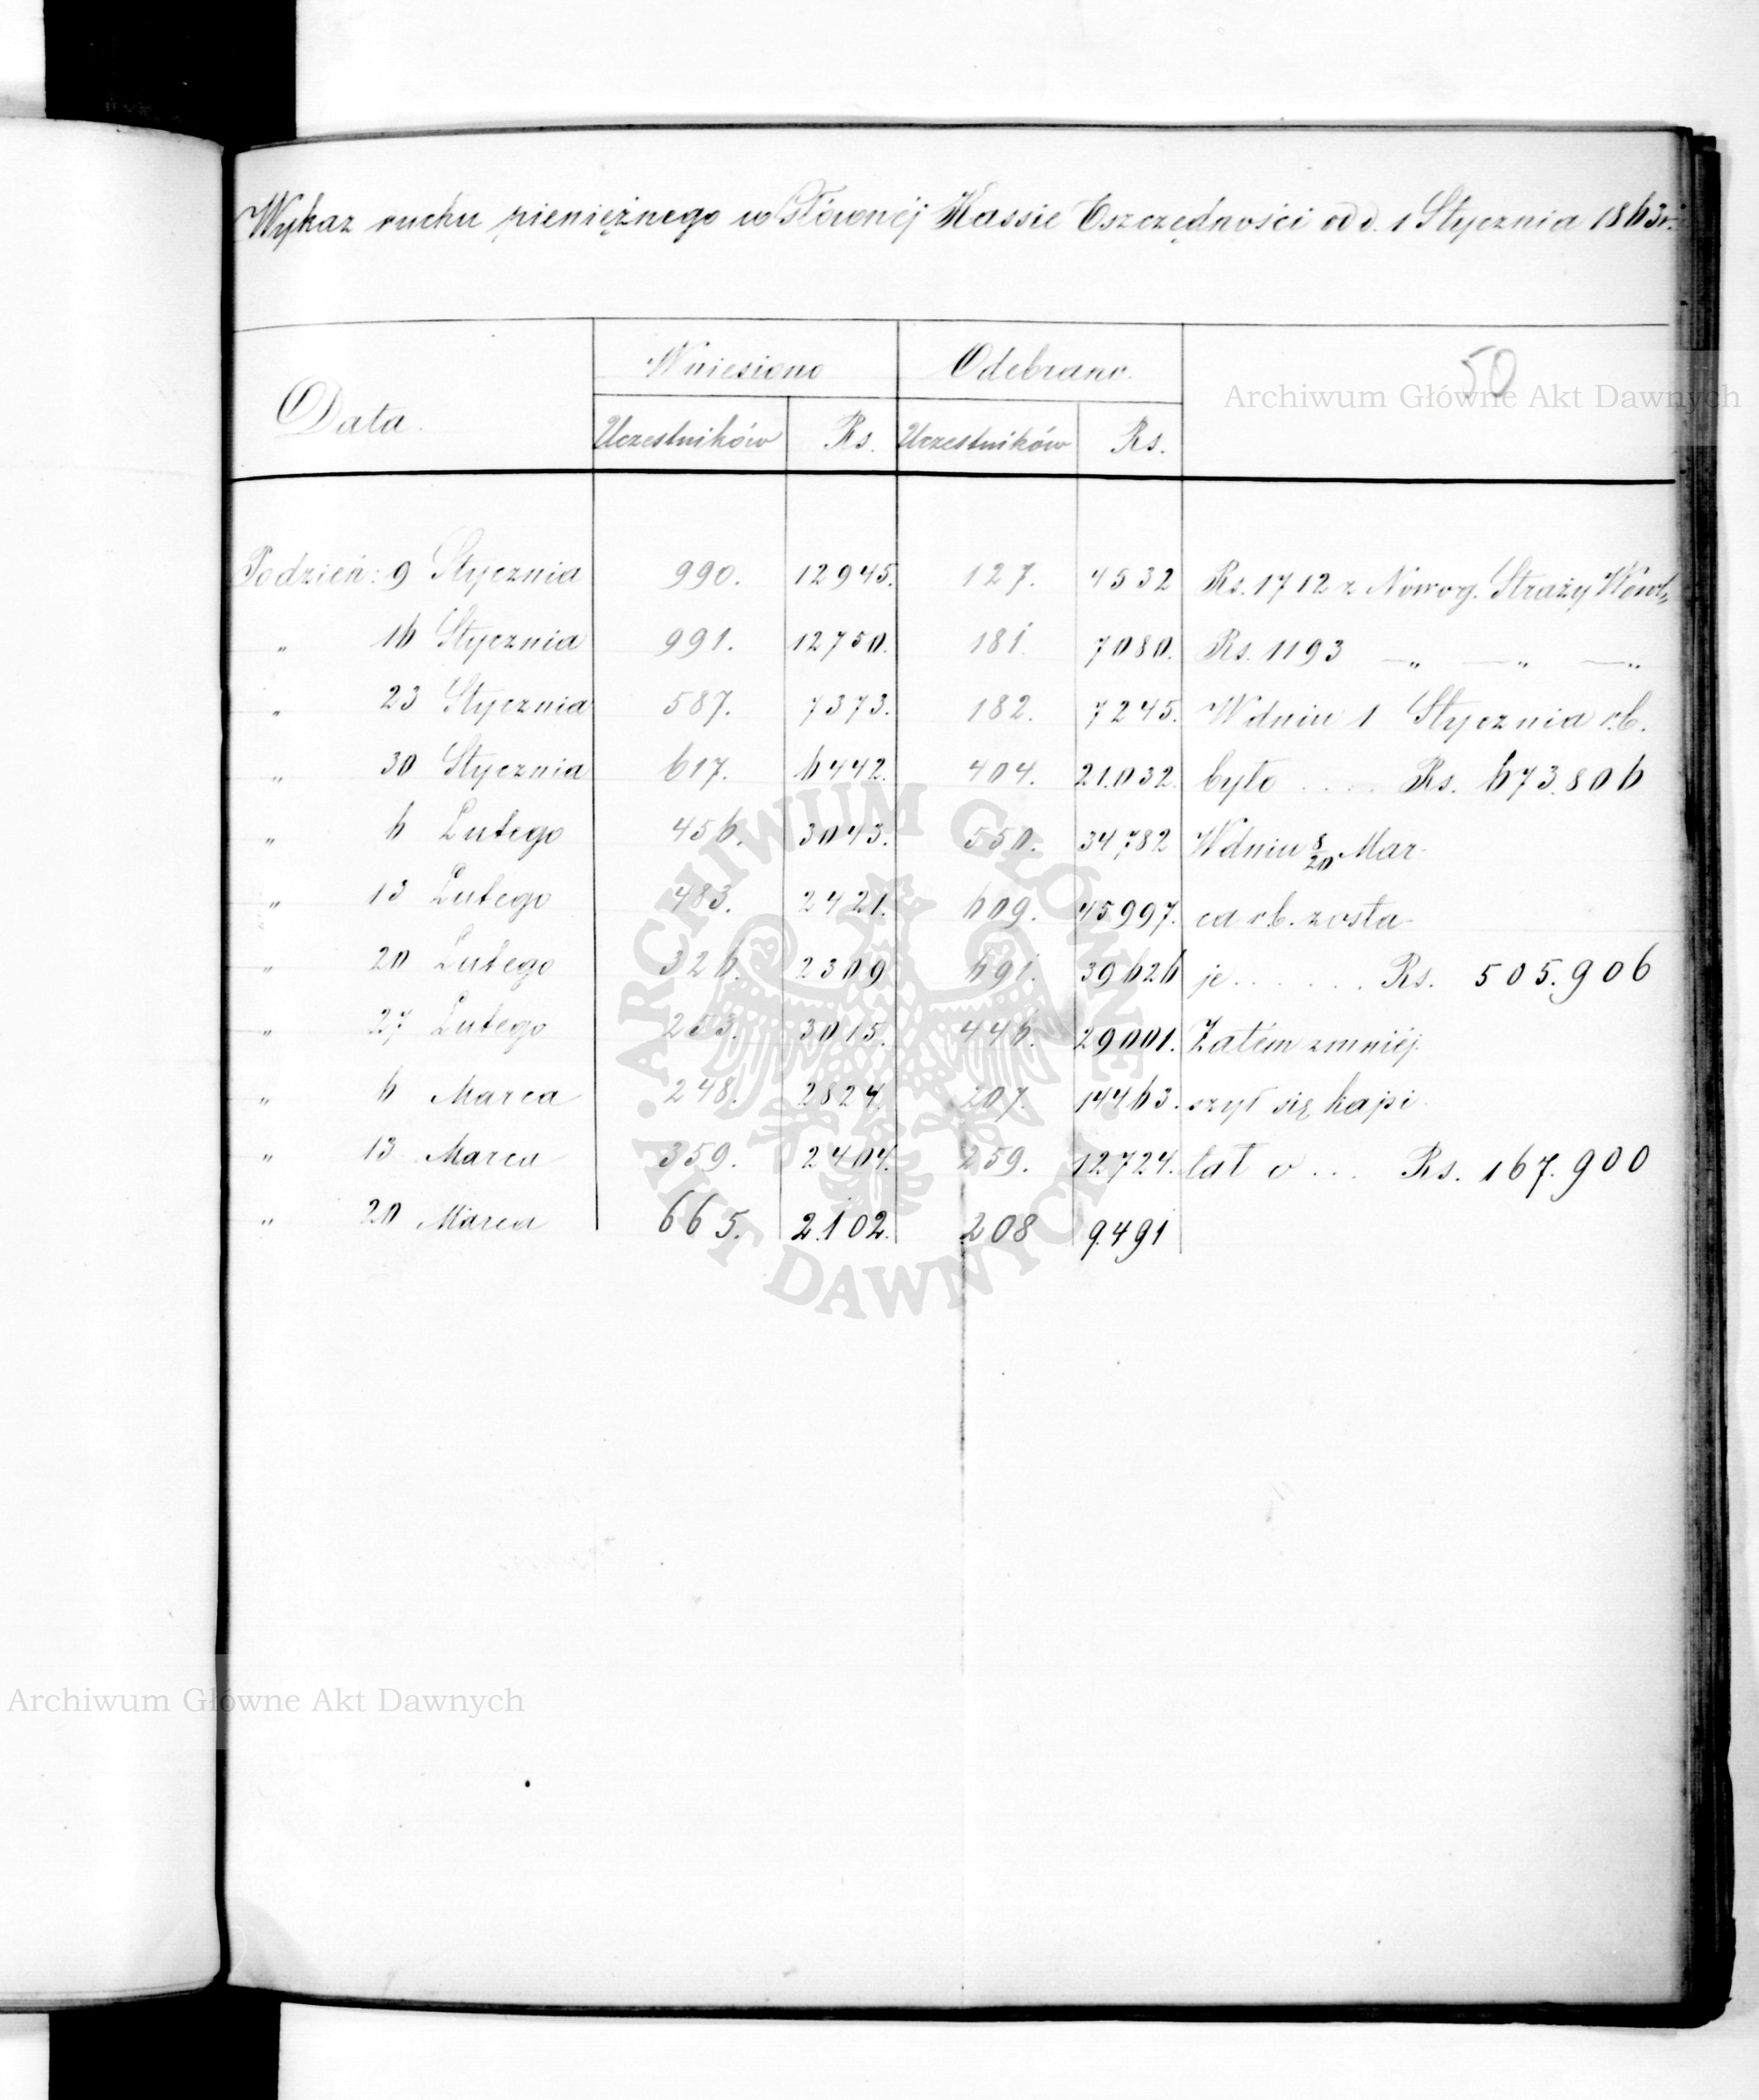 Wykaz ruchu pieniężnego w Głównéj Kassie Oszczędności od d. 1 Stycznia 1863 r.
50
Archiwum Główne Akt Dawnych
Data. Wniesiono Odebrano.
Uczestników Rs. Uczestników Rs.
Podzień: 9 Stycznia 990. 12945. 127. 4532 Rs. 1712 z Nowog. Straży
" 16 Stycznia 991. 12750. 181. 7080. Rs. 1193 — " — " — "
" 23 Stycznia 587. 7373. 182. 7245. W dniu 1 Stycznia r.b.
" 30 Stycznia 617. 6442. 404. 21.032. było .... Rs. 673.806
" 6 Lutego 456. 3043. 550. 34,782 W dniu 8/20 Mar-
" 13 Lutego 483. 2421. 609. 45997. ca r.b. zosta-
" 20 Lutego 326. 2309 691. 39626 je ...... Rs. 505.906
" 27 Lutego 253. 3015. 446. 29001. Zatém zmniéj-
" 6 Marca 248. 2824. 207. 14463. szył się kapi-
" 13 Marca 359. 2404. 259. 12724. tał o ... Rs. 167.900
" 20 Marca 665. 2.102. 208 9.491
ARCHIWUM GŁÓWNE AKT DAWNYCH
Archiwum Główne Akt Dawnych